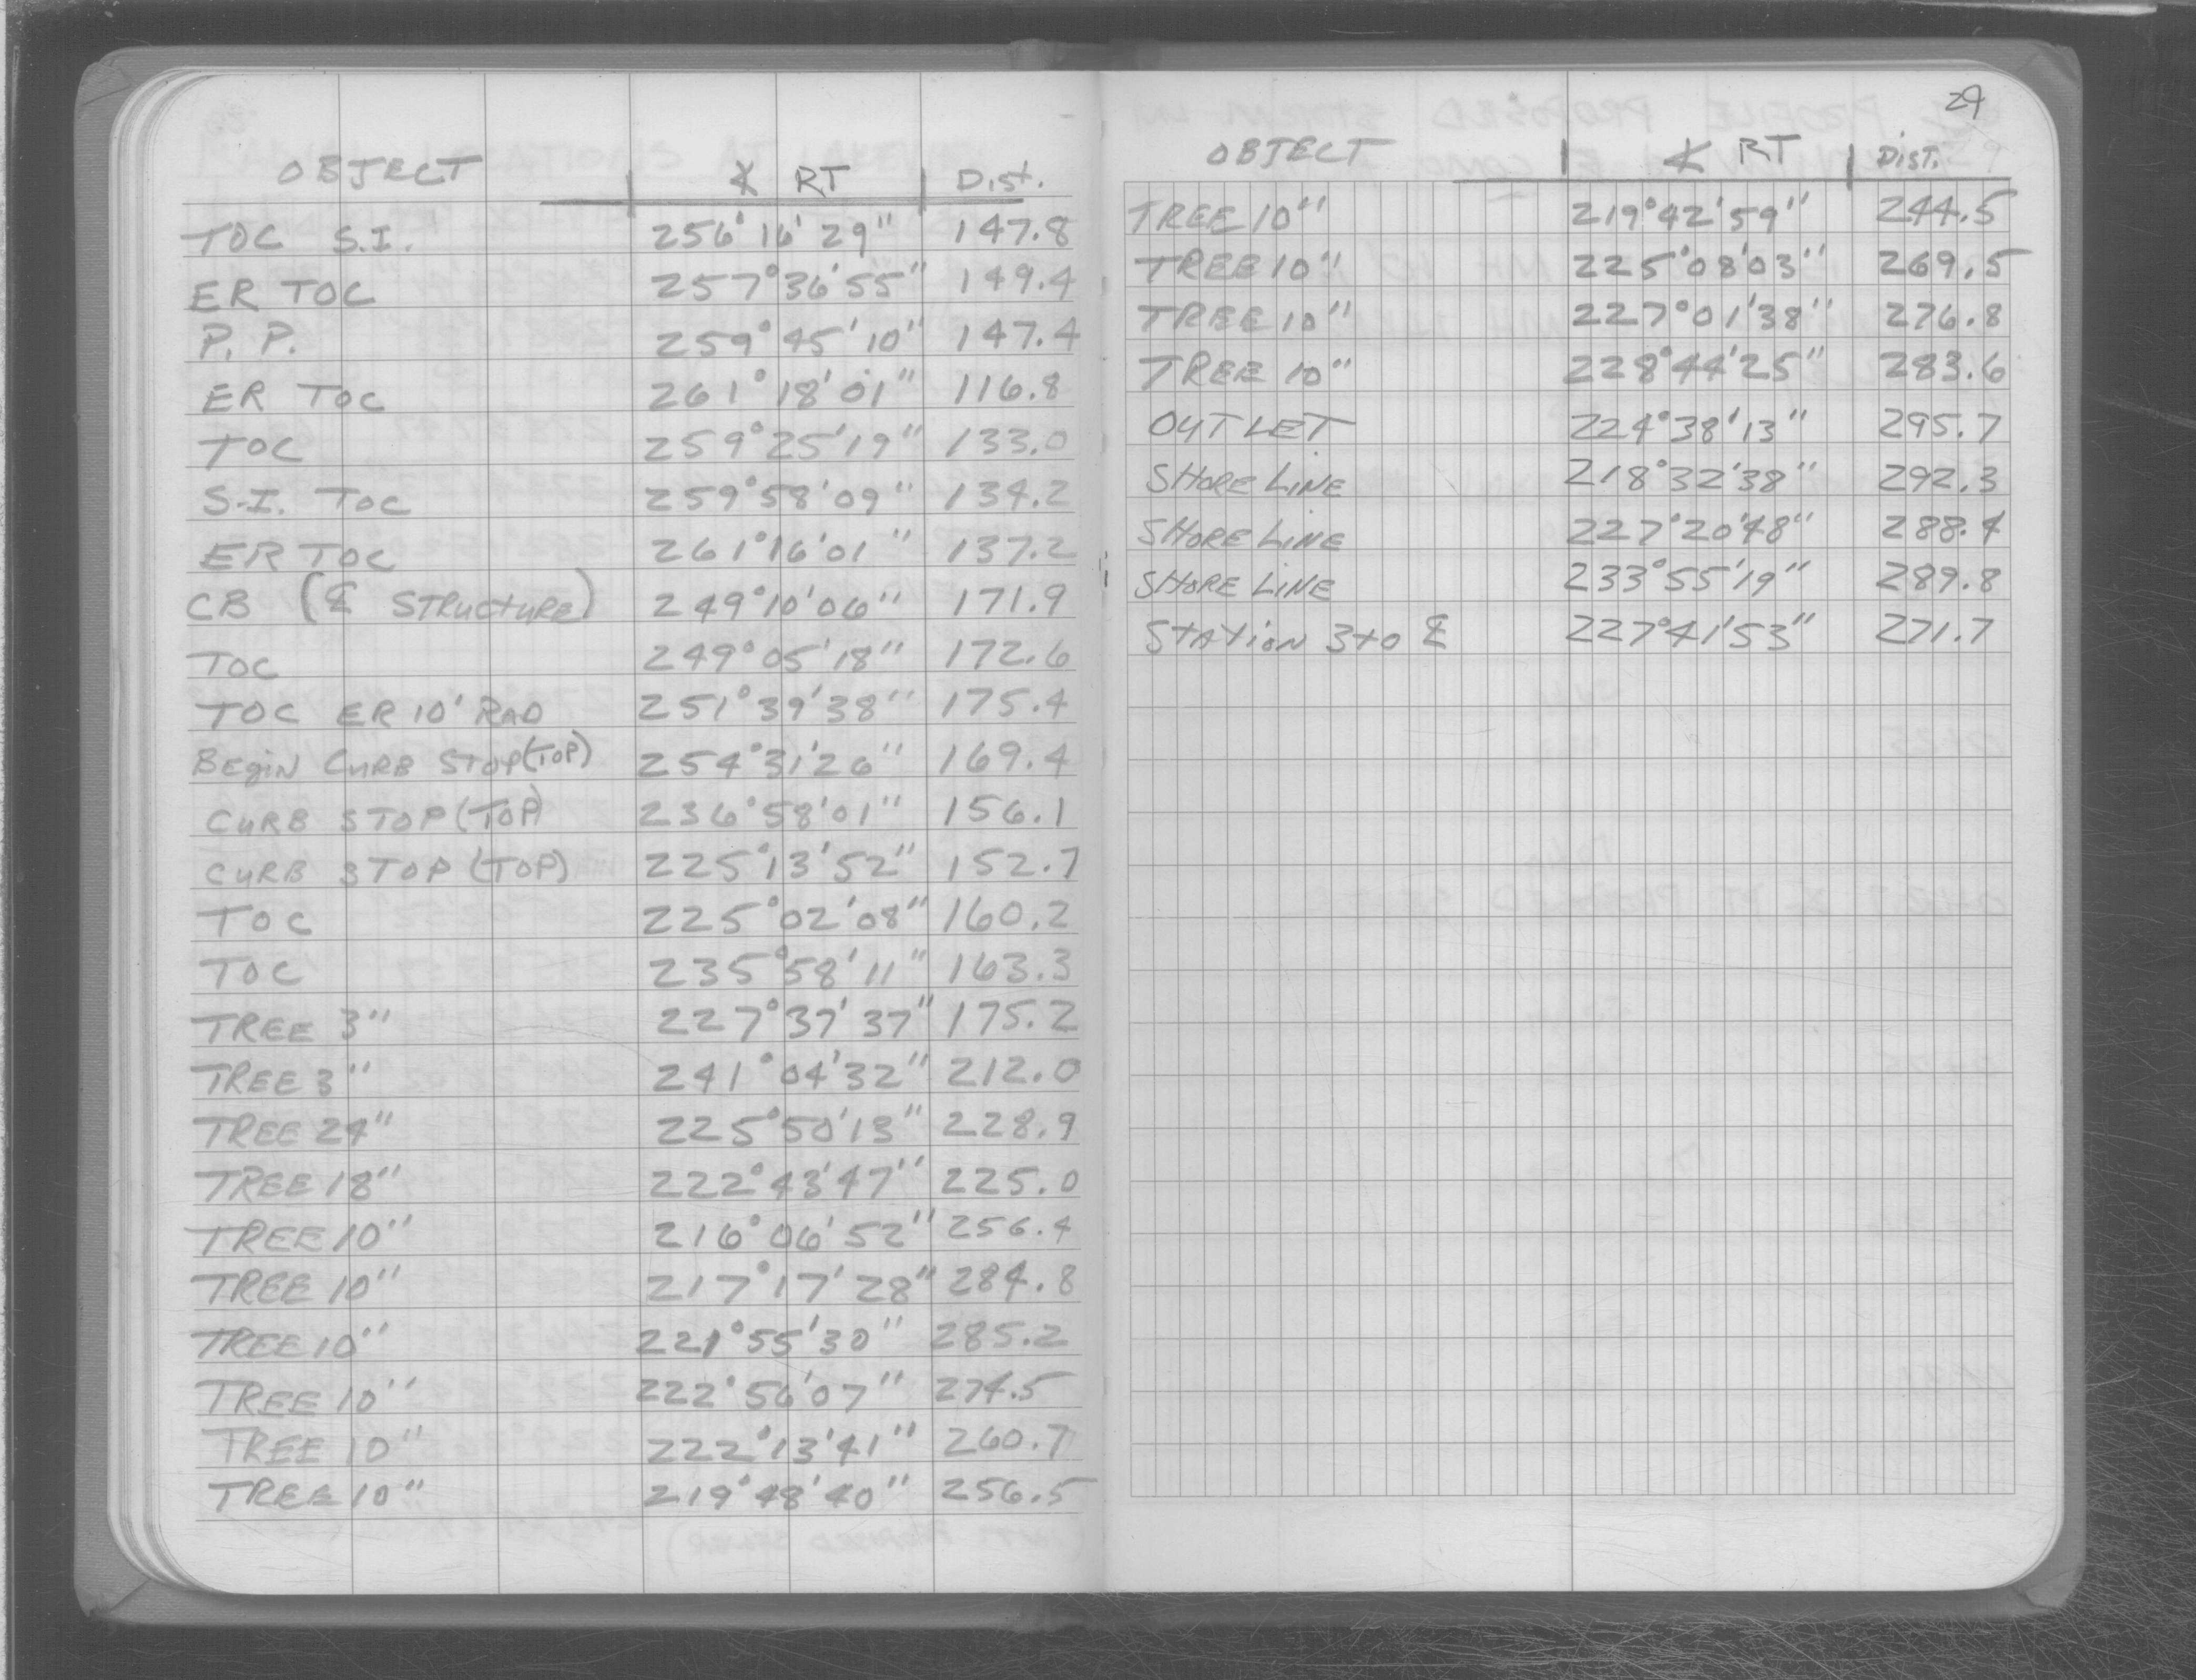 OBJECT ∡ RT Dist.
TOC S.I. 256°16'29" 147.8
ER TOC 257°36'55" 149.4
P. P. 259°45'10" 147.4
ER TOC 261°18'01" 116.8
TOC 259°25'19" 133.0
S.I. TOC 259°58'09" 134.2
ER TOC 261°16'01" 137.2
CB (℄ STRUCTURE) 249°10'06" 171.9
TOC 249°05'18" 172.6
TOC ER 10' RAD 251°39'38" 175.4
BEGIN CURB STOP (TOP) 254°31'26" 169.4
CURB STOP (TOP) 236°58'01" 156.1
CURB STOP (TOP) 225°13'52" 152.7
TOC 225°02'08" 160.2
TOC 235°58'11" 163.3
TREE 3" 227°37'37" 175.2
TREE 3" 241°04'32" 212.0
TREE 24" 225°50'13" 228.9
TREE 18" 222°43'47" 225.0
TREE 10" 216°06'52" 256.4
TREE 10" 217°17'28" 284.8
TREE 10" 221°55'30" 285.2
TREE 10" 222°56'07" 274.5
TREE 10" 222°13'41" 260.7
TREE 10" 219°48'40" 256.5
29
OBJECT ∡ RT DIST.
TREE 10" 219°42'59" 244.5
TREE 10" 225°08'03" 269.5
TREE 10" 227°01'38" 276.8
TREE 10" 228°44'25" 283.6
OUTLET 224°38'13" 295.7
SHORE LINE 218°32'38" 292.3
SHORE LINE 227°20'48" 288.4
SHORE LINE 233°55'19" 289.8
STATION 3+0 ℄ 227°41'53" 271.7